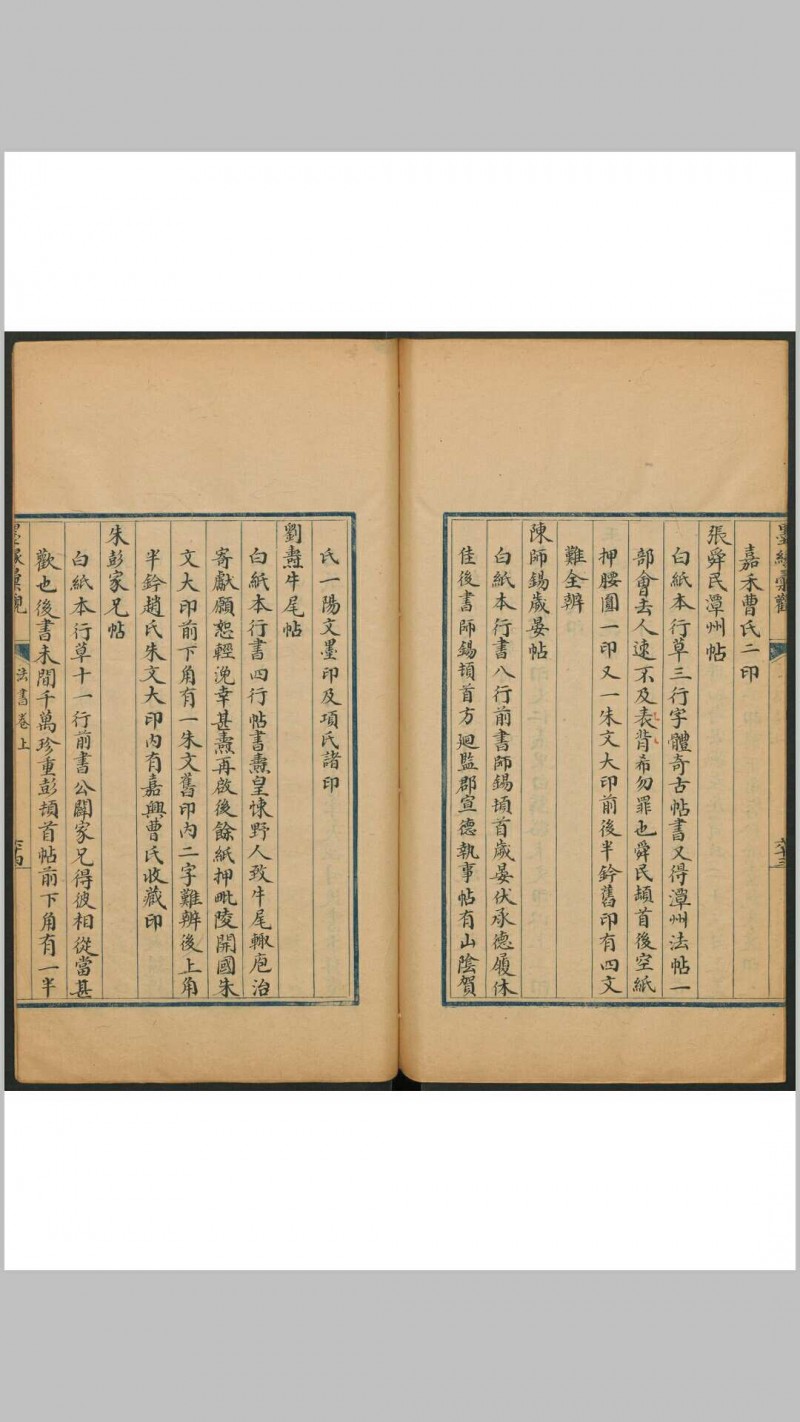 墨緣彙觀
嘉禾曹氏二印
張舜民潭州帖
白紙本行草三行字體奇古帖書又得潭州法帖一
部會去人速不及表背希勿罪也舜民頓首後空紙
押腰圓一印又一朱文大印前後半鈐舊印有四文
難全辨
陳師錫歲晏帖
白紙本行書八行前書師錫頓首歲晏伏承德履休
佳後書師錫頓首方迴監郡宣德執事帖有山陰賀
氏一陽文墨印及項氏諸印
劉燾牛尾帖
白紙本行書四行帖書燾皇悚野人致牛尾輙庖治
寄獻願恕輕浼幸甚燾再啟後餘紙押毗陵開國朱
文大印前下角有一朱文舊印內二字難辨後上角
半鈐趙氏朱文大印內有嘉興曹氏收藏印
朱彭家兄帖
白紙本行草十一行前書公闢家兄得彼相從當甚
歡也後書未間千萬珍重彭頓首帖前下角有一半
墨緣彙觀 法書卷上